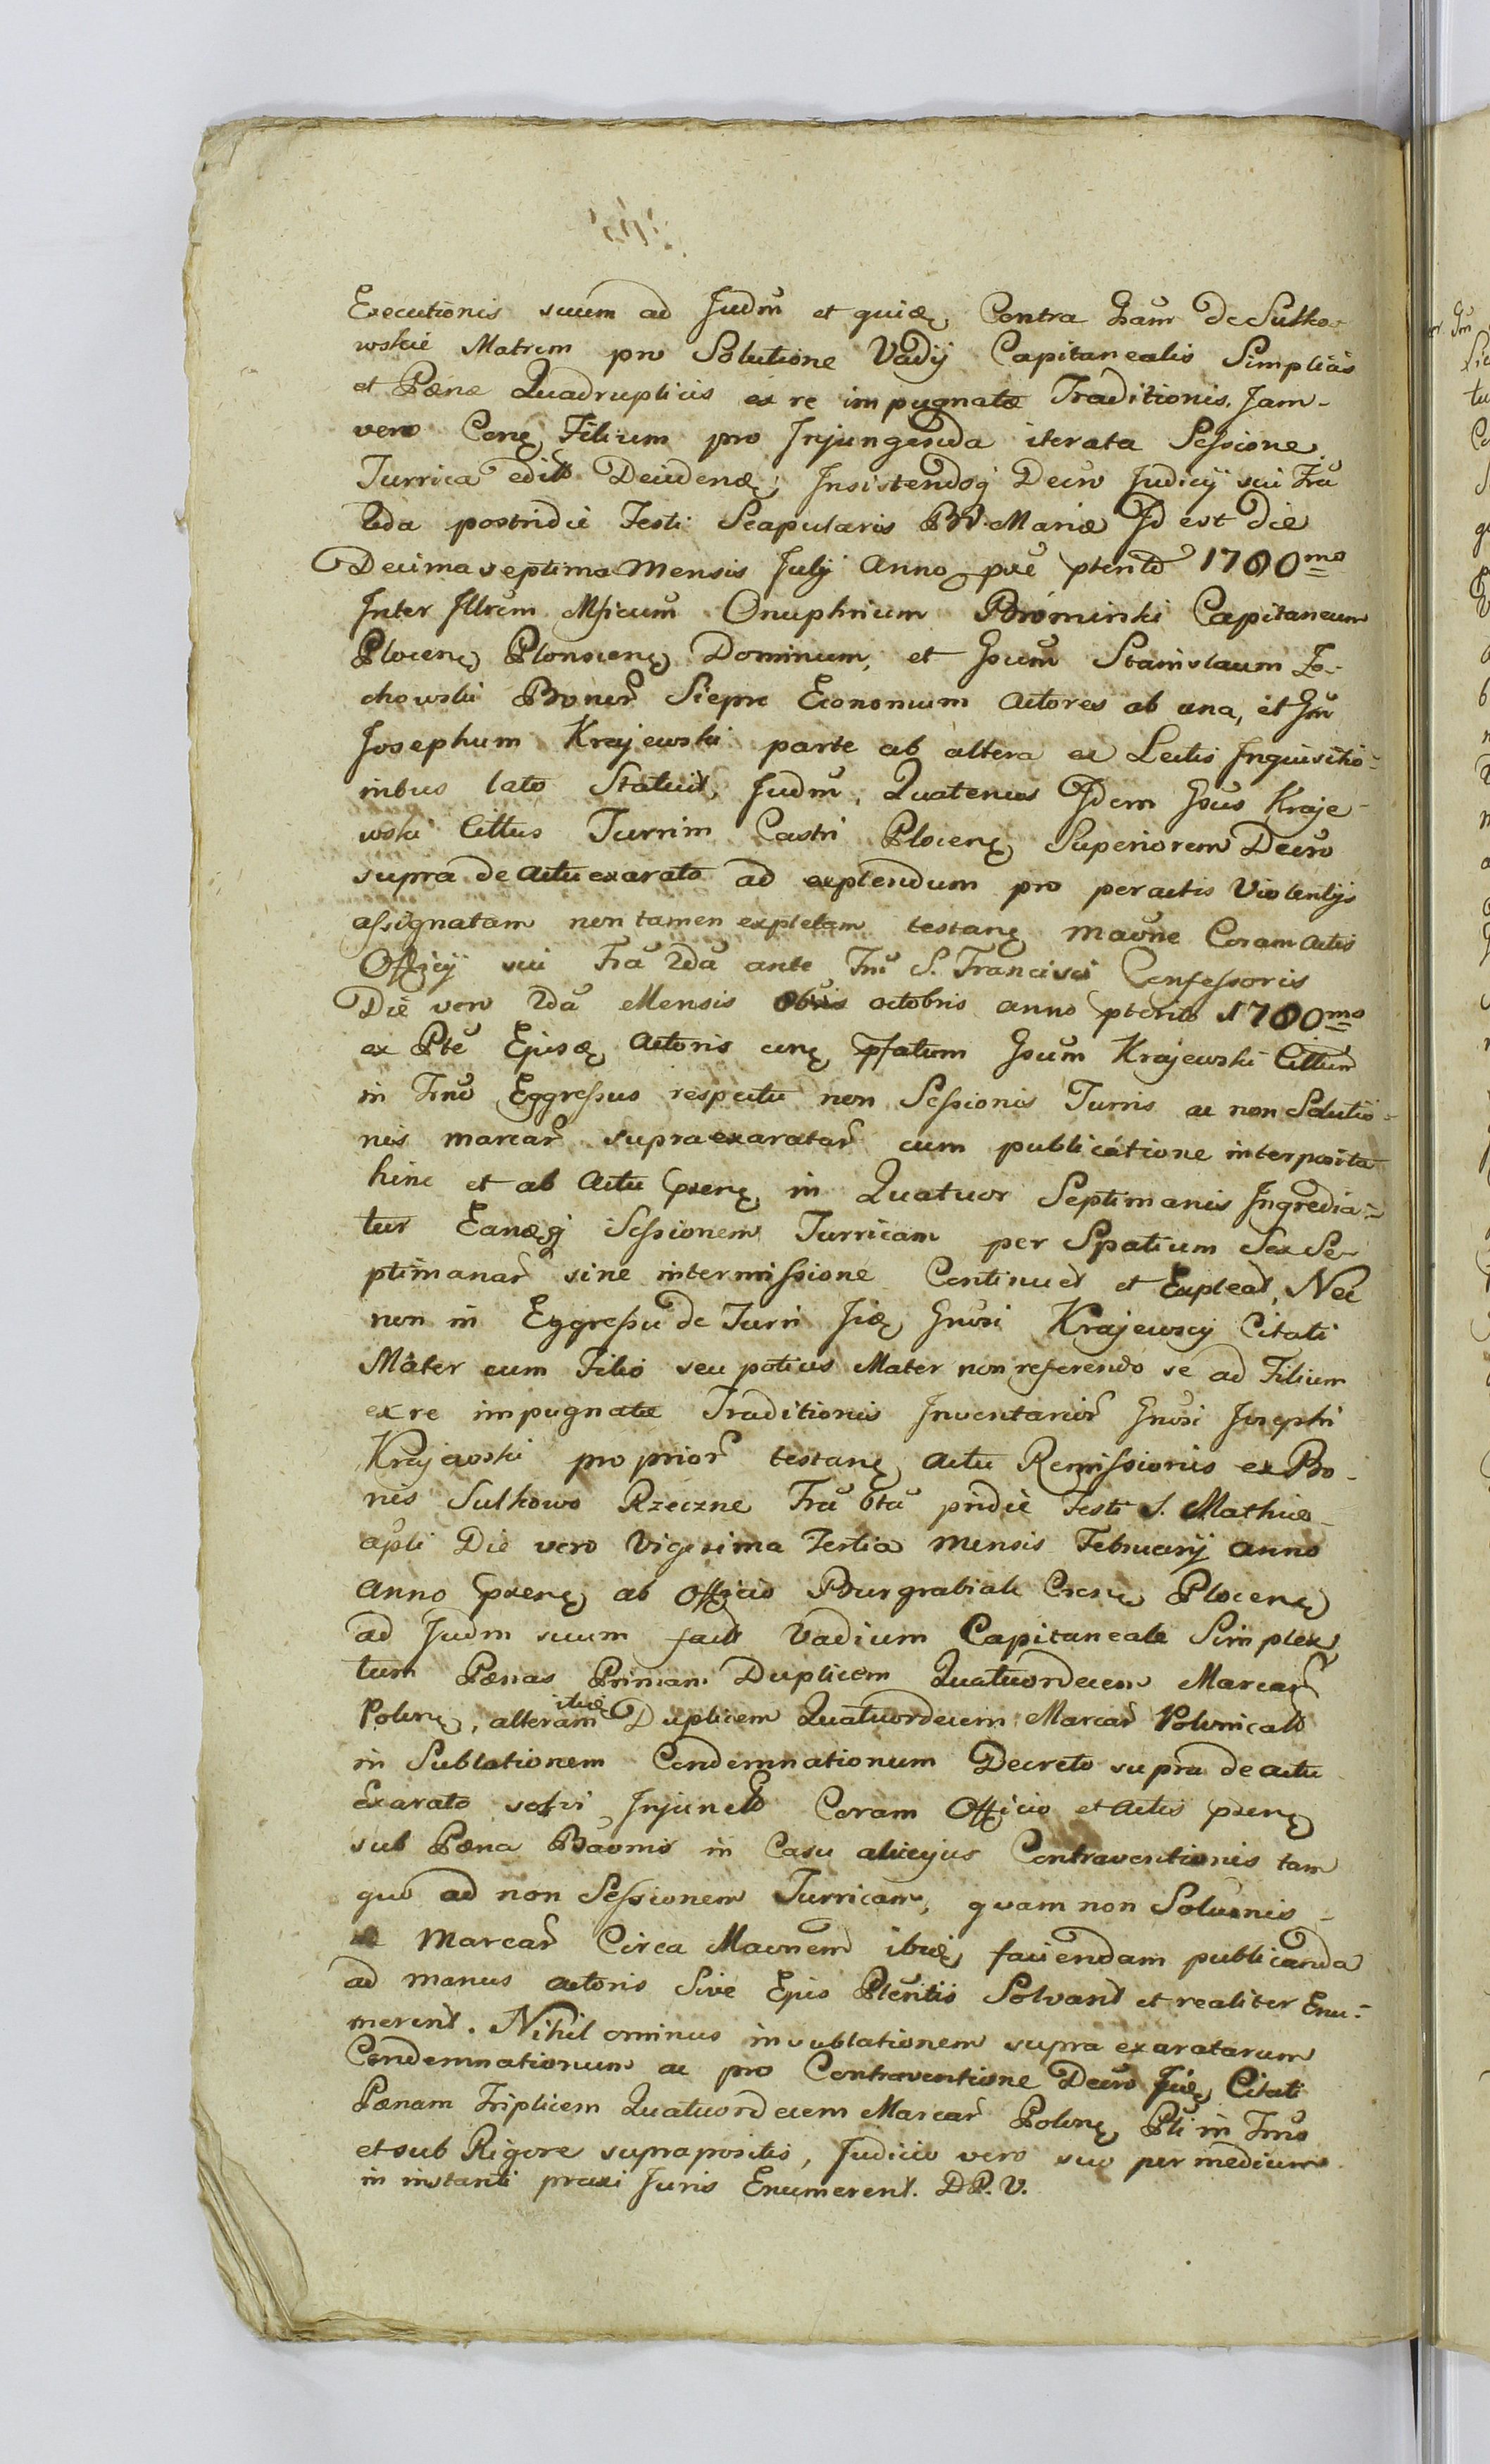 Executionis suum ad Judm et quidę Contra Gnam de Sulko-
wskie Matrem pro Solutione Vadij Capitanealis Simplicis
et Pænæ Quadruplicis ex re impugnatæ Traditionis, Jam-
vero Cenę Filium pro Injungenda iterata Seſsione
Turrica edit Decidenę; Insistendoq Decro Judicij sui Fra
2da postridie Festi Scapularis BV. Mariæ Id est die
Decima septima Mensis Julij Anno pxe pterito 1780mo
Inter Illrem Mficum Onuphrium Brominski Capitaneum
Plocenę Plonscenę Dominum, et Gsum Stanislaum Zo-
chowski Bonor Sierpc Economum Actores ab una, et Gm
Josephum Krajewski parte ab altera ex Lectis Inquisitio-
inbus lato Statuit, Judm, Quatenus Idem Gsus Kraje-
wski Cittus Turrim Castri Plocenę Superiorem Decro
supra de actu exarato ad explendum pro peractis Violentijs
aſsignatam non tamen expletam testanę maone Coram Actis
Officij sui Fra 2da ante Fm S. Francisci Confeſsoris
Die vero 2da Mensis octobris anno pterito 1780mo
ex Pte Ejusdę Actoris cenę pfatum Gsum Krajewski Cittum
in Fno Eggreſsus respectu non Seſsionis Turris ac non Solutio-
nis marcar supra exaratar cum publicatione interposita
hinc et ab Actu pxenę in Quatuor Septimanis Ingredia-
tur Eanęq Seſsionem Turricam per Spatium Sex Se-
ptimanar sine intermiſsione Continuet et Expleat, Nec
non in Eggreſsu de Turri Jidę Gnosi Krajewscy Citati
Mater cum Filio seu potius Mater non referendo se ad Filium
ex re impugnatæ Traditionis Inventarior Gnosi Josephi
Krajewski proprior testanę Actu Remiſsionis ex Bo-
nis Sulkowo Rzeczne Fra 6ta pridie Festi S. Mathiæ
apli Die vero Vigesima Tertia Mensis Februarij anno
Anno pxenę ab Officio Burgrabiali Crens Plocenę
ad Judm suum fact Vadium Capitaneale Simplex
tum Pænas Primam Duplicem Quatuordecem Marcar
Polonę, alteram itidę Duplicem Quatuordecem Marcar Polonicalt
in Sublationem Condemnationum Decreto supra de actu
Exarato solvi Injunct Coram Officio et Actis pxenę
sub Pæna Baonis in Casu alicujus Contraventionis tam
quo ad non Seſsionem Turricam, quam non Soluonis
Marcar Circa Maonem ibidę faciendam publicanda
ad manus actoris Sive Ejus Plentis Solvant et realiter Enu-
merent. Nihil ominus in sublationem supra exaratarum
Condemnationum ac pro Contraventione Decro Jidę Citati
Pænam Triplicem Quatuordecem Marcar Polonę Pti in Fno
et sub Rigore suprapositis, Judicio vero suo per medium
in instanti praxi Juris Enumerent. D.P.V.